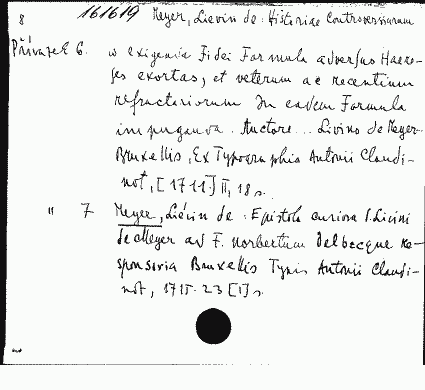 8 161619 Meyer, Lievin de: Historiae Controversiarum
Přívazek 6. w exigenia Fidei Formula adversus Haere-
ses exortas, et veterum ac recentium
refractariorum In eadem Formula
impuganda. Auctore... Livino de Meyer.
Bruxellis, Ex Typographia Antonii Claudi-
not, [1711] II, 18 s.
" 7 Meyer, Liévin de: Epistola curiosa P. Livini
de Meyer ad F. Norbertum Delbecque Re-
sponsoria Bruxellis Typis Antonii Claudi-
not, 1715. 23 [1] s.